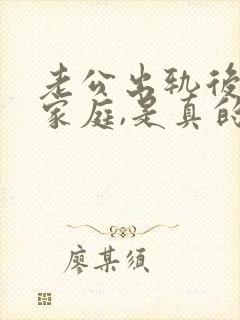 老公出轨後
家庭,是真的
廖某須